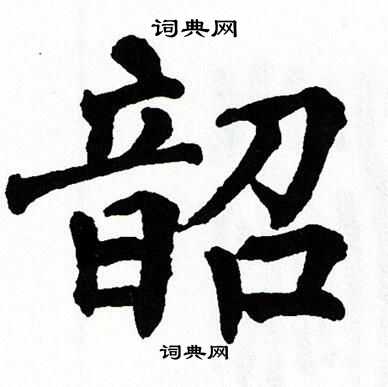 词典网
韶
词典网